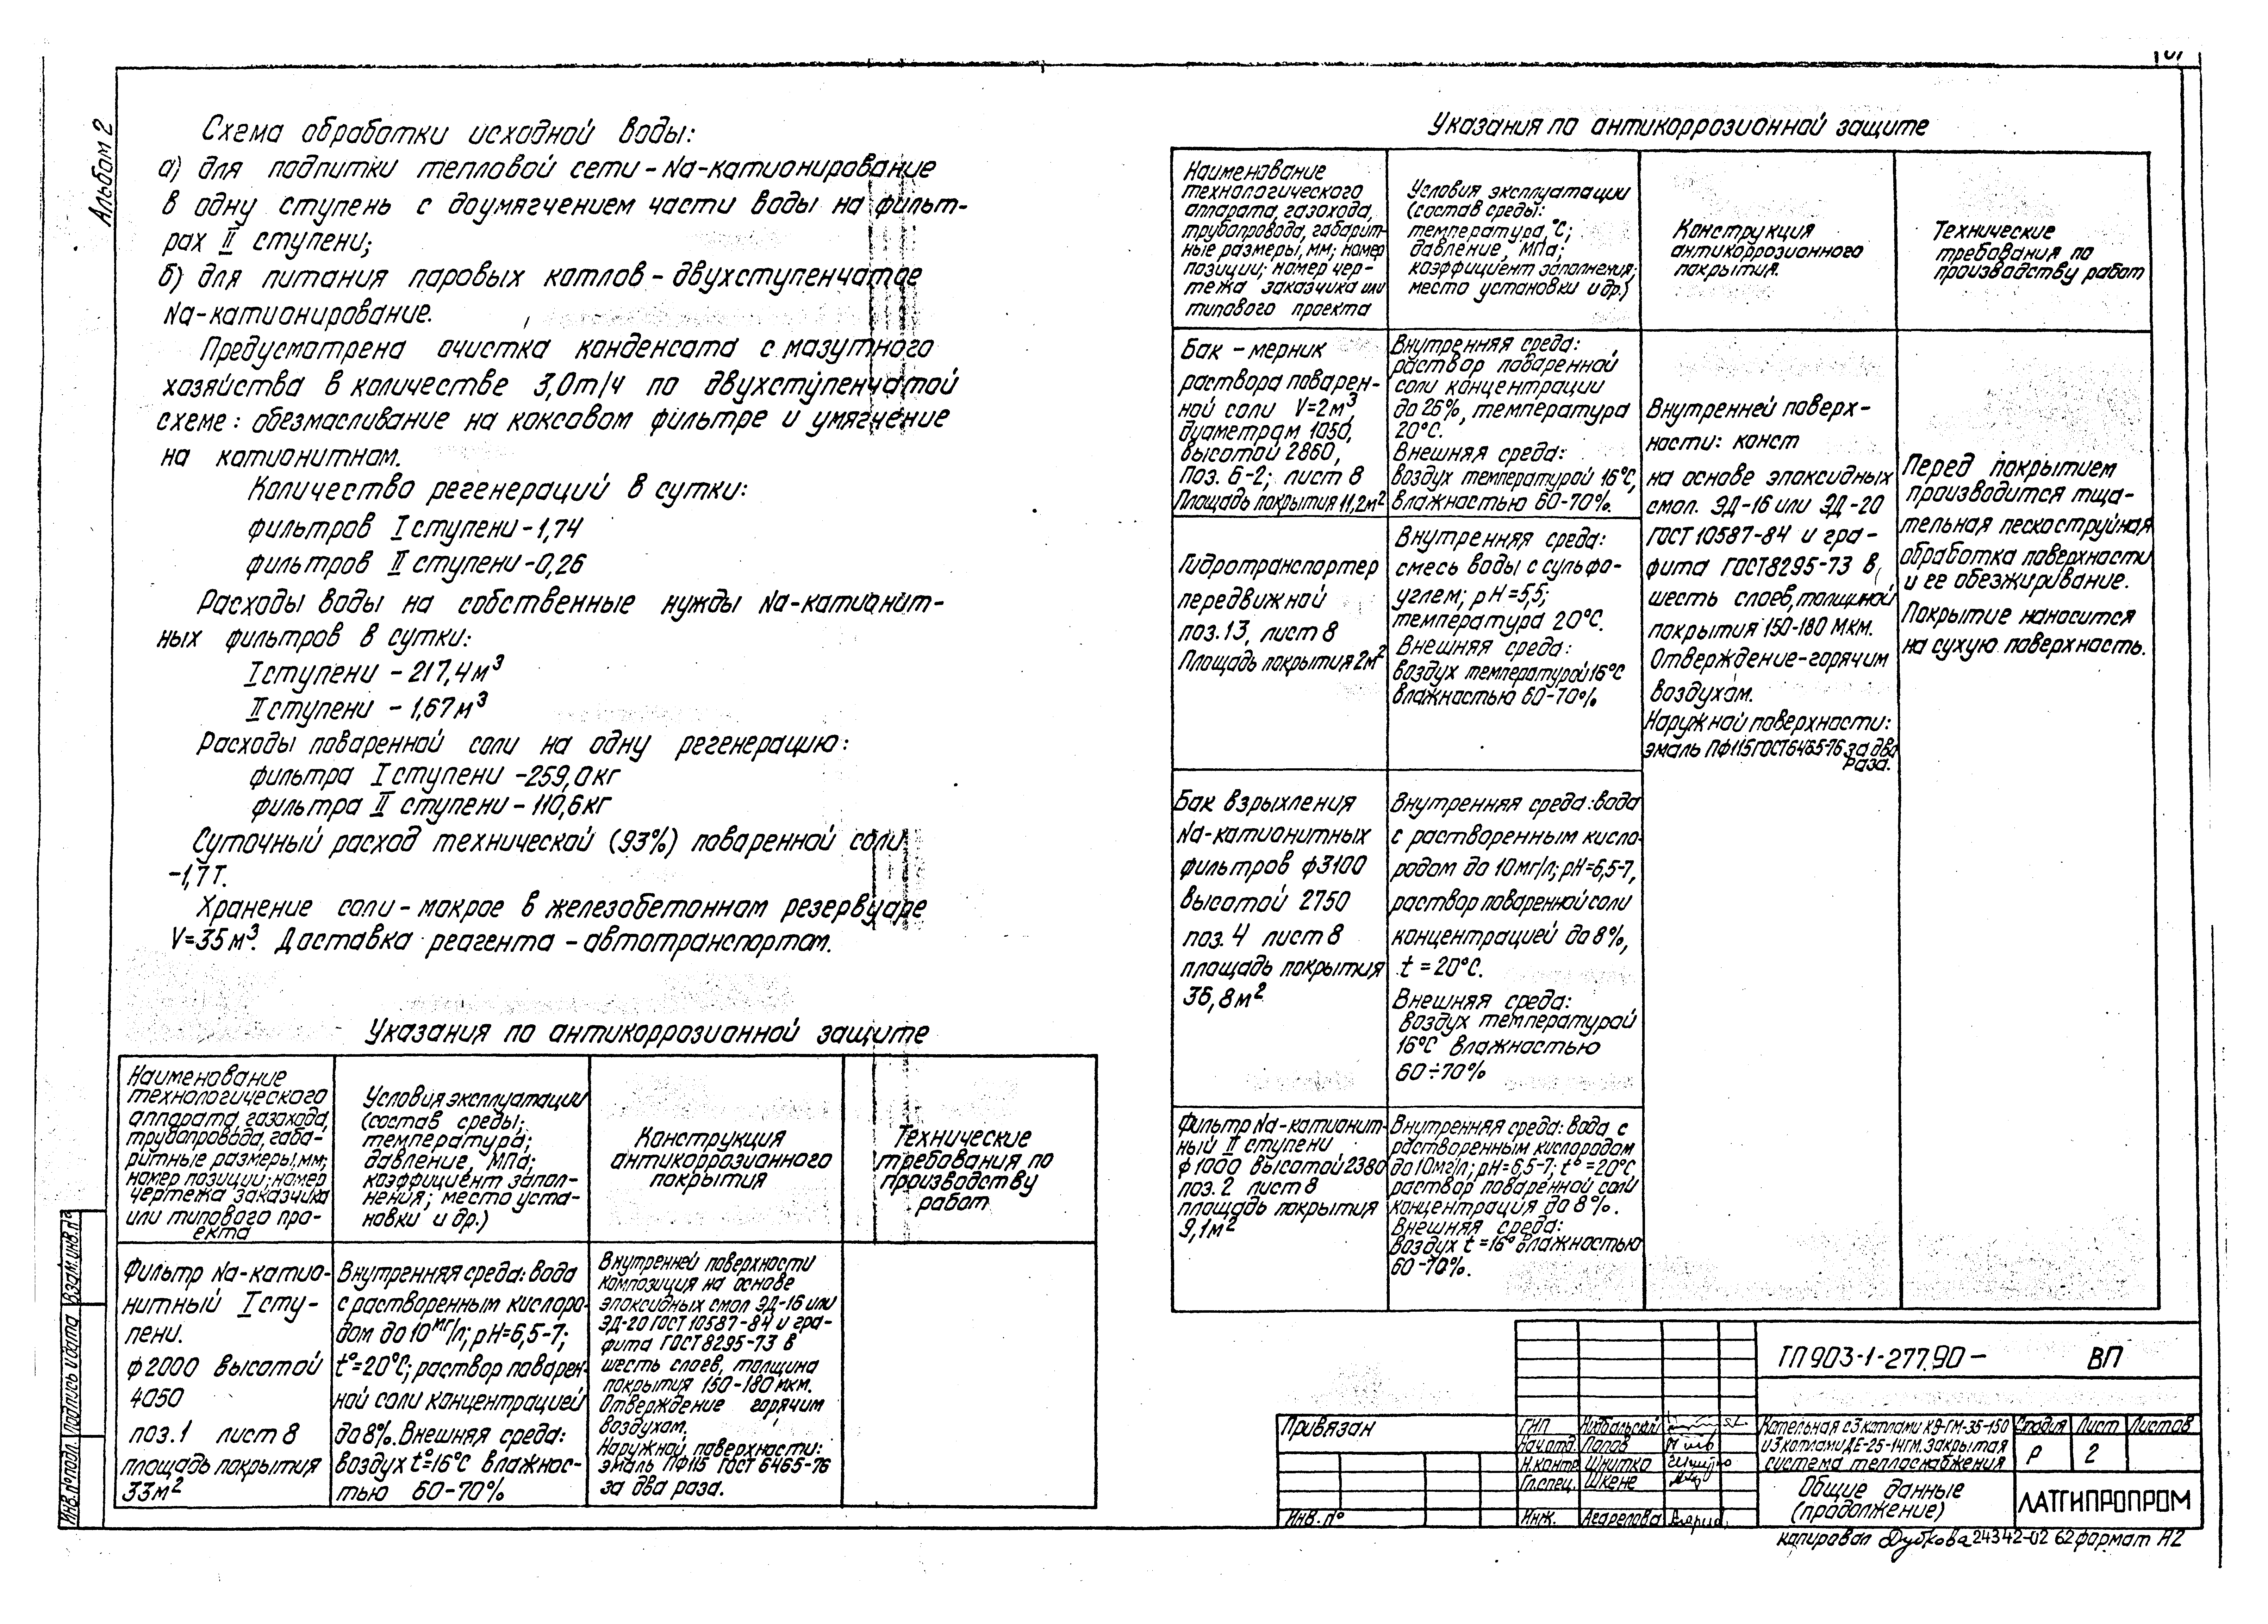 Альбом 2
Схема обработки исходной воды:
а) для подпитки тепловой сети - Na-катионирование
в одну ступень с доумягчением части воды на фильт-
рах II ступени;
б) для питания паровых котлов - двухступенчатое
Na-катионирование.
Предусмотрена очистка конденсата с мазутного
хозяйства в количестве 3,0т/ч по двухступенчатой
схеме: обезмасливание на коксовом фильтре и умягчение
на катионитном.
Количество регенераций в сутки:
фильтров I ступени - 1,74
фильтров II ступени - 0,26
Расходы воды на собственные нужды Na-катионит-
ных фильтров в сутки:
I ступени - 217,4 м³
II ступени - 1,67 м³
Расходы поваренной соли на одну регенерацию:
фильтра I ступени - 259,0 кг
фильтра II ступени - 110,6 кг
Суточный расход технической (93%) поваренной соли
-1,7 т.
Хранение соли - мокрое в железобетонном резервуаре
V=35 м³. Доставка реагента - автотранспортом.
Указания по антикоррозионной защите
Наименование
технологического
аппарата, газохода,
трубопровода, габа-
ритные размеры, мм;
номер позиции; номер
чертежа заказчика
или типового про-
екта
Условия эксплуатации
(состав среды;
температура;
давление, МПа;
коэффициент запол-
нения; место уста-
новки и др.)
Конструкция
антикоррозионного
покрытия
Технические
требования по
производству
работ
Фильтр Na-катио-
нитный I сту-
пени.
ф2000 высотой
4050
поз.1 лист 8
площадь покрытия
33м²
Внутренняя среда: вода
с растворенным кислоро-
дом до 10 мг/л; pH=6,5-7;
t°=20°C; раствор поварен-
ной соли концентрацией
до 8%. Внешняя среда:
воздух t°=16°C влажнос-
тью 60-70%
Внутренней поверхности
композиция на основе
эпоксидных смол ЭД-16 или
ЭД-20 ГОСТ 10587-84 и гра-
фита ГОСТ 8295-73 в
шесть слоев, толщина
покрытия 150-180 мкм.
Отверждение горячим
воздухом.
Наружной поверхности:
эмаль ПФ115 ГОСТ 6465-76
за два раза.
Указания по антикоррозионной защите
Наименование
технологического
аппарата, газохода,
трубопровода, габарит-
ные размеры, мм; номер
позиции; номер чер-
тежа заказчика или
типового проекта
Условия эксплуатации
(состав среды:
температура, °C;
давление, МПа;
коэффициент заполнения;
место установки и др.)
Конструкция
антикоррозионного
покрытия.
Технические
требования по
производству работ
Бак - мерник
раствора поварен-
ной соли V=2м³
диаметром 1050,
высотой 2860,
поз. 6-2; лист 8
Площадь покрытия 11,2м²
Внутренняя среда:
раствор поваренной
соли концентрации
до 26%, температура
20°C.
Внешняя среда:
воздух температурой 16°C,
влажностью 60-70%.
Внутренней поверх-
ности: конст
на основе эпоксидных
смол. ЭД-16 или ЭД-20
ГОСТ 10587-84 и гра-
фита ГОСТ 8295-73 в
шесть слоев, толщиной
покрытия 150-180 мкм.
Отверждение - горячим
воздухом.
Наружной поверхности:
эмаль ПФ115 ГОСТ 6465-76 за два
раза.
Перед покрытием
производится тща-
тельная пескоструйная
обработка поверхности
и ее обезжиривание.
Покрытие наносится
на сухую поверхность.
Гидротранспортер
передвижной
поз. 13, лист 8
Площадь покрытия 2м²
Внутренняя среда:
смесь воды с сульфо-
углем; pH=5,5;
температура 20°C.
Внешняя среда:
воздух температурой 16°C
влажностью 60-70%
Бак взрыхления
Na-катионитных
фильтров ф3100
высотой 2750
поз. 4 лист 8
площадь покрытия
36,8м²
Внутренняя среда: вода
с растворенным кисло-
родом до 10мг/л; pH=6,5-7,
раствор поваренной соли
концентрацией до 8%,
t = 20°C.
Внешняя среда:
воздух температурой
16°C влажностью
60÷70%
Фильтр Na-катионит-
ный II ступени
ф1000 высотой 2380
поз. 2 лист 8
площадь покрытия
9,1м²
Внутренняя среда: вода с
растворенным кислородом
до 10мг/л; pH=6,5-7; t°=20°C
раствор поваренной соли
концентрация до 8%.
Внешняя среда:
воздух t=16° влажностью
60-70%.
Инв.№подл. Подпись и дата Взам.инв.№
ТП 903-1-277.90- ВП
Привязан
Инв. №
ГИП
Нач.отд. Попов
Н.контр. Шнитко
Гл.спец. Шкене
Инж.
Котельная с 3 котлами КВ-ГМ-35-150
и 3 котлами ДЕ-25-14ГМ. Закрытая
система теплоснабжения
Стадия Лист Листов
Р 2
Общие данные
(продолжение)
ЛАТГИПРОПРОМ
копировал Дубкова 24342-02 62 формат А2